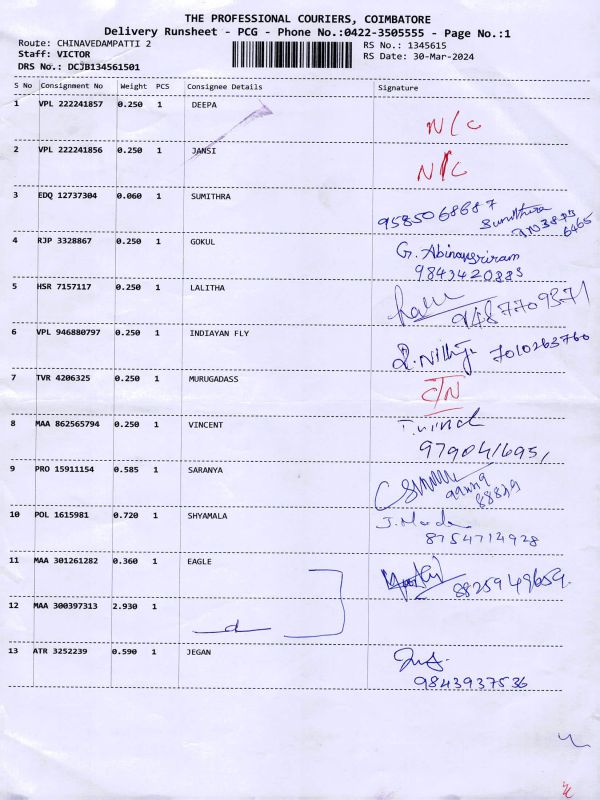 THE PROFESSIONAL COURIERS, COIMBATORE
Delivery Runsheet - PCG - Phone No.:0422-3505555 - Page No.:1
Route: CHINAVEDAMPATTI 2
RS No.: 1345615
Staff: VICTOR
RS Date: 30-Mar-2024
DRS No.: DCJB134561501
S No Consignment No Weight PCS Consignee Details Signature
1 VPL 222241857 0.250 1 DEEPA N/C
2 VPL 222241856 0.250 1 JANSI N/C
3 EDQ 12737304 0.060 1 SUMITHRA 9585068687 Sumithra
4 RJP 3328867 0.250 1 GOKUL G. Abinaysriram
9843420883
5 HSR 7157117 0.250 1 LALITHA 9487709371
6 VPL 946880797 0.250 1 INDIAYAN FLY 7010263760
7 TVR 4206325 0.250 1 MURUGADASS C/N
8 MAA 862565794 0.250 1 VINCENT
9790416951
9 PRO 15911154 0.585 1 SARANYA
10 POL 1615981 0.720 1 SHYAMALA
8754714928
11 MAA 301261282 0.360 1 EAGLE 8825949659.
12 MAA 300397313 2.930 1
13 ATR 3252239 0.590 1 JEGAN
9843937536